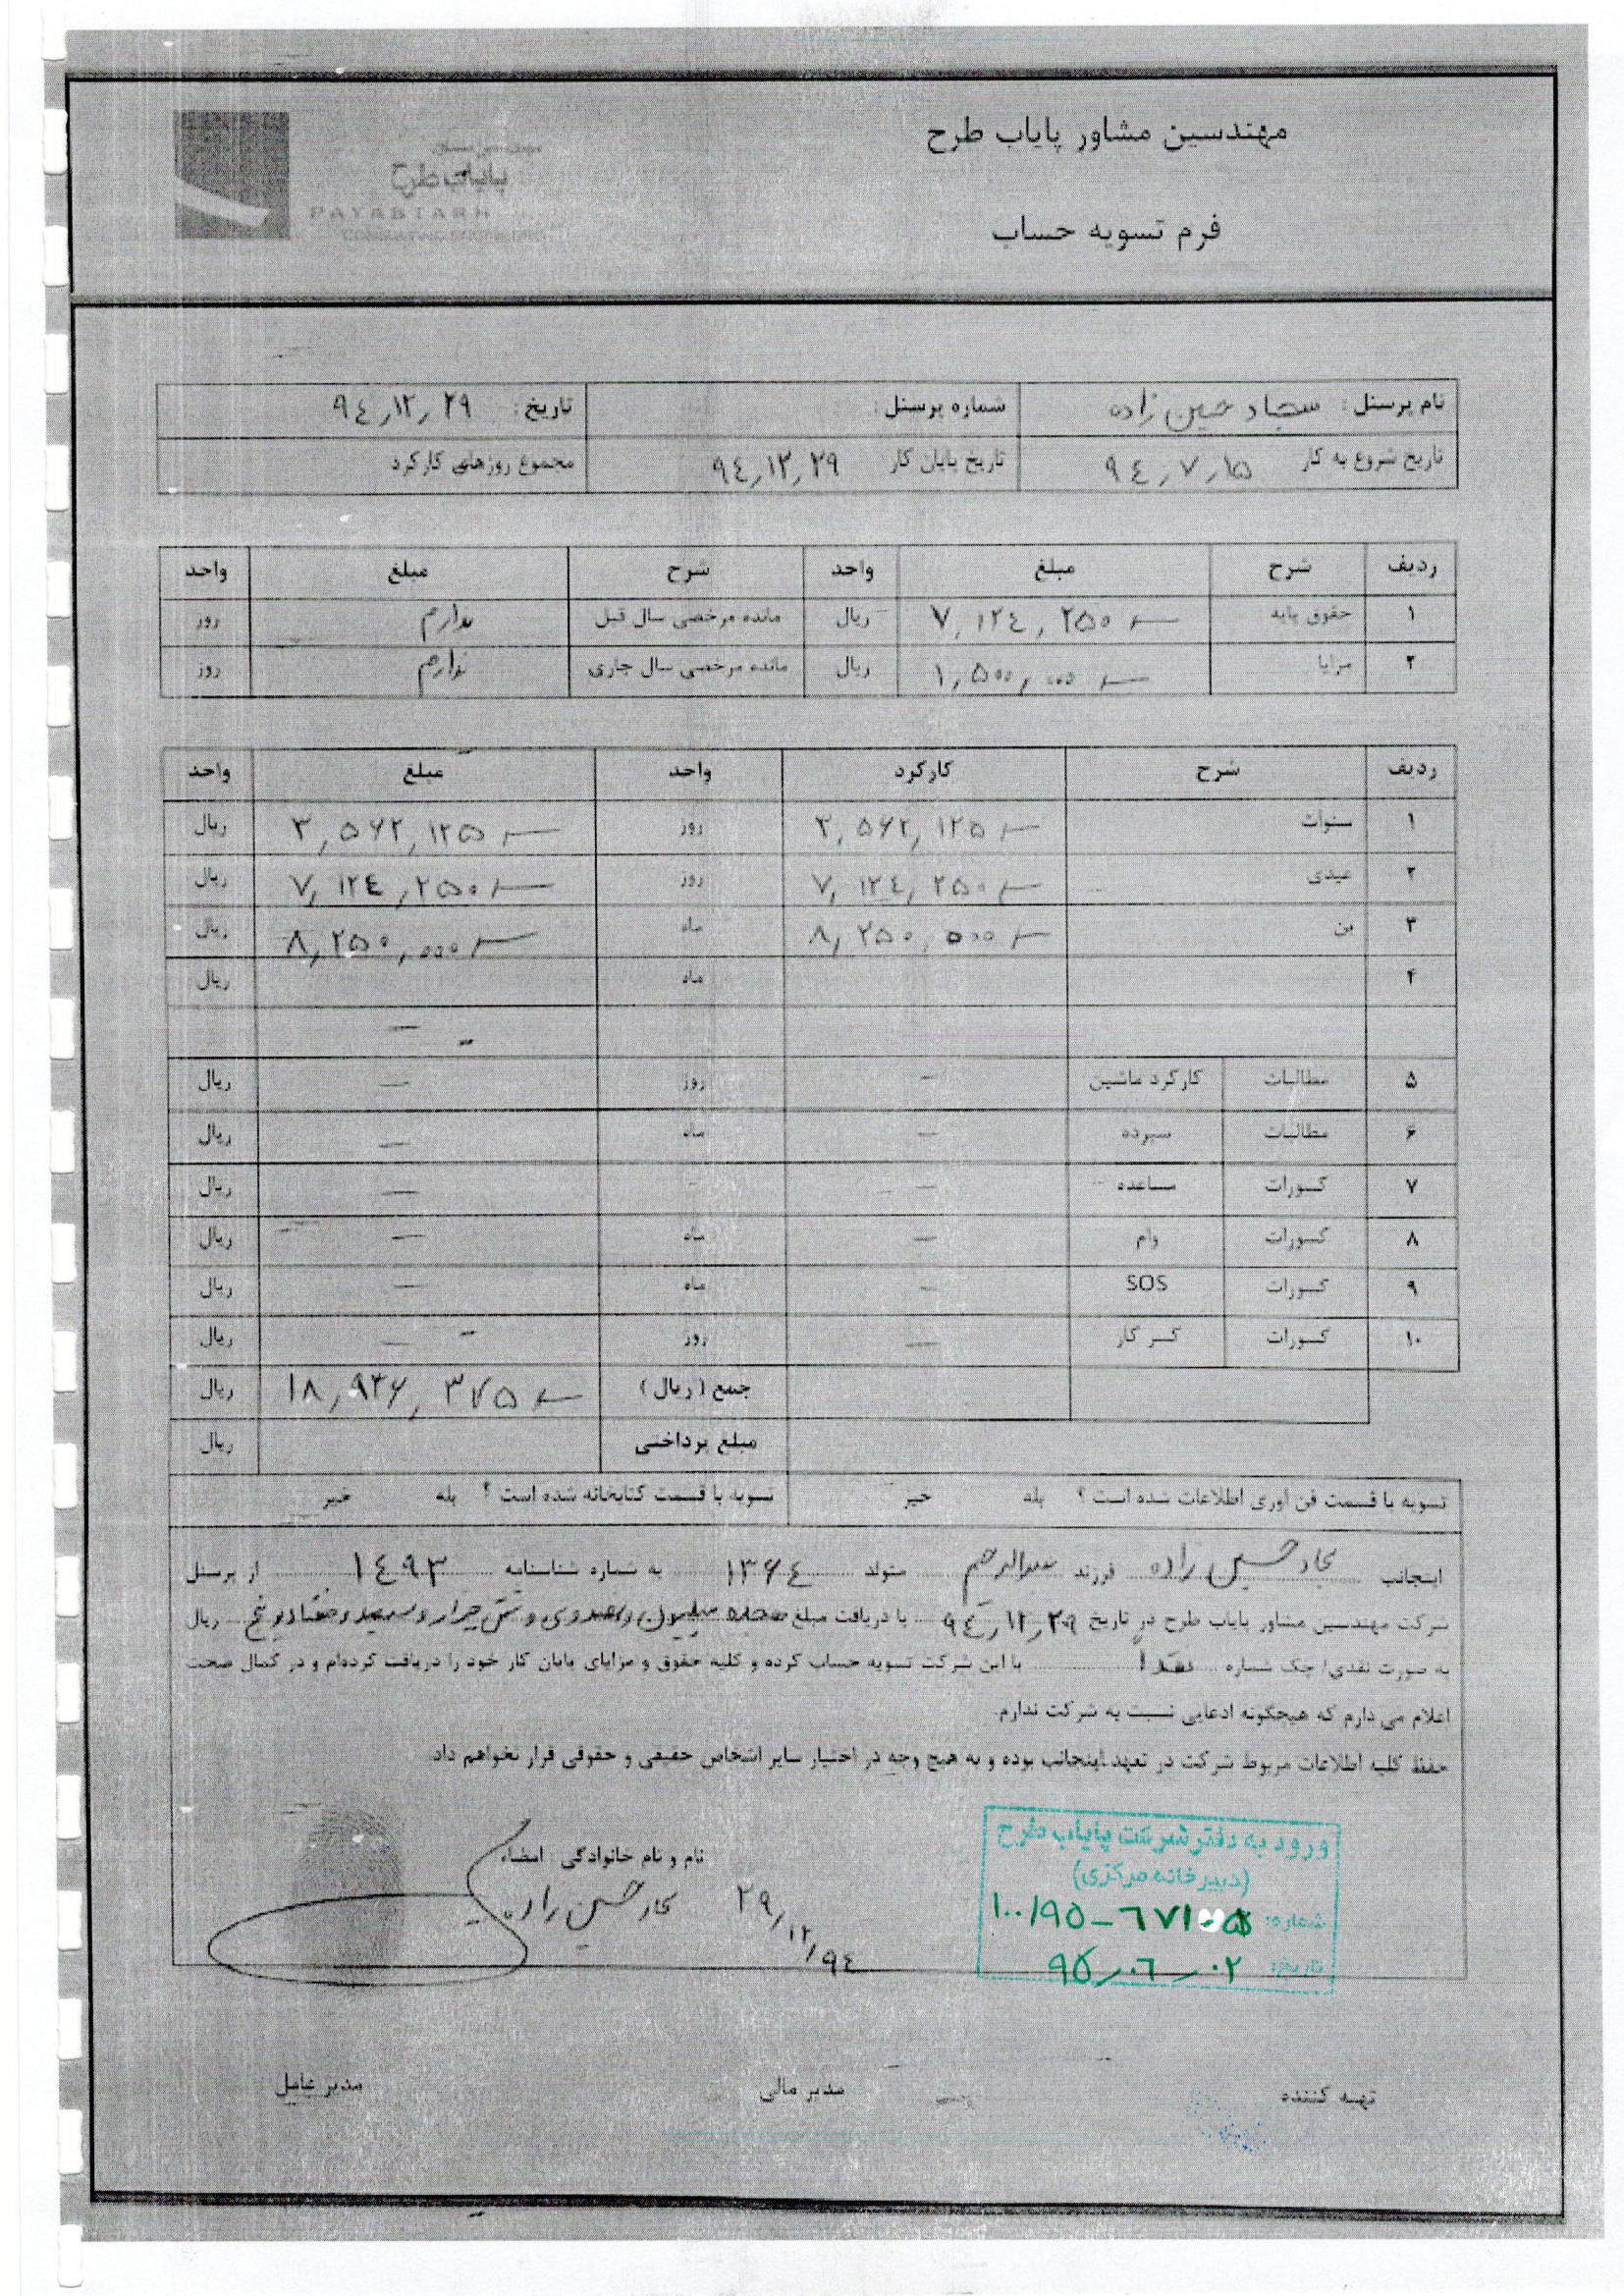 مهندسین مشاور پایاب طرح
پایاب طرح
PAYABTARH
فرم تسویه حساب
نام پرسنل : سجاد حسین زاده شماره پرسنل : تاریخ : ۹٤,۱۲,۲۹
تاریخ شروع به کار ۹٤,۷,۱۵ تاریخ پایان کار ۹٤,۱۲,۲۹ مجموع روزهای کارکرد
ردیف شرح مبلغ واحد شرح مبلغ واحد
۱ حقوق پایه ۷,۱۲٤,۲۵۰ ریال مانده مرخصی سال قبل ندارم روز
۲ مزایا ۱,۵۰۰,۰۰۰ ریال مانده مرخصی سال جاری ندارم روز
ردیف شرح کارکرد واحد مبلغ واحد
۱ سنوات ۳,۵۶۲,۱۲۵ روز ۳,۵۶۲,۱۲۵ ریال
۲ عیدی ۷,۱۲٤,۲۵۰ روز ۷,۱۲٤,۲۵۰ ریال
۳ بن ۸,۲۵۰,۰۰۰ ماه ۸,۲۵۰,۰۰۰ ریال
۴ ماه ریال
۵ مطالبات کارکرد ماشین – روز – ریال
۶ مطالبات سپرده – ماه – ریال
۷ کسورات مساعده – – ریال
۸ کسورات وام – ماه – ریال
۹ کسورات SOS – ماه – ریال
۱۰ کسورات کسر کار – روز – ریال
جمع (ریال) ۱۸,۹۳۶,۳۷۵ ریال
مبلغ پرداختی ریال
تسویه با قسمت فن آوری اطلاعات شده است ؟ بله خیر تسویه با قسمت کتابخانه شده است ؟ بله خیر
اینجانب سجاد حسین زاده فرزند عبدالرحیم متولد ۱۳۶٤ به شماره شناسنامه ۱٤۹۳ از پرسنل
شرکت مهندسین مشاور پایاب طرح در تاریخ ۹٤,۱۲,۲۹ با دریافت مبلغ هجده میلیون و نهصدوسی و شش هزار و سیصد و هفتاد و پنج ریال
به صورت نقدی/ چک شماره نقدا با این شرکت تسویه حساب کرده و کلیه حقوق و مزایای پایان کار خود را دریافت کرده‌ام و در کمال صحت
اعلام می دارم که هیچگونه ادعایی نسبت به شرکت ندارم.
حفظ کلیه اطلاعات مربوط شرکت در تعهد اینجانب بوده و به هیچ وجه در اختیار سایر اشخاص حقیقی و حقوقی قرار نخواهم داد.
نام و نام خانوادگی امضاء
سجاد حسین زاده ۲۹,۱۲/۹٤
ورود به دفتر شرکت پایاب طرح
(دبیرخانه مرکزی)
شماره:
تاریخ: ۹۵,۰٦,۰۲
تهیه کننده مدیر مالی مدیر عامل